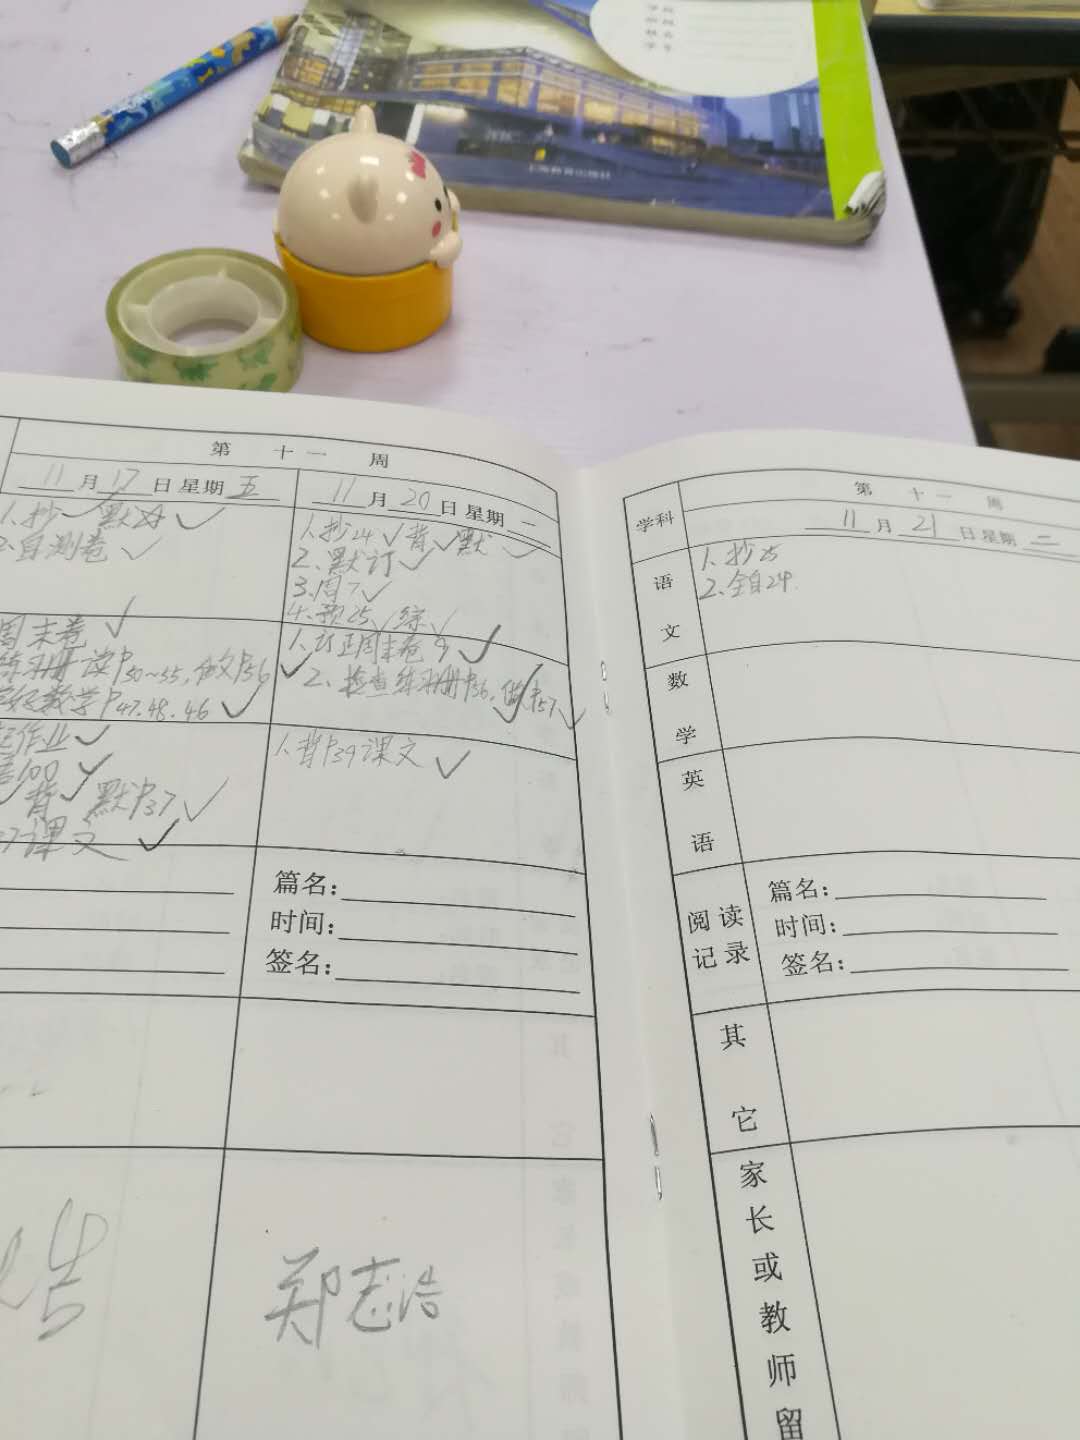 上海教育出版社
第 十 一 周
11月17日星期五
1.抄✓默✓
2.自测卷✓
周末卷✓
练习册读P50~55,做P56✓
数学P47.48.46✓
作业✓
100✓
背✓默P37✓
37课文✓
11月20日星期一
1.抄24✓背✓默✓
2.默订✓
3.周7✓
4.预25✓综✓
1.订正周末卷9✓
2.检查练习册P56,做P57✓
1.背P39课文✓
篇名:
时间:
签名:
郑志浩
学科
第 十 一 周
11月21日星期二
语文
1.抄25
2.全自24
数学
英语
阅读记录
篇名:
时间:
签名:
其它
家长或教师留